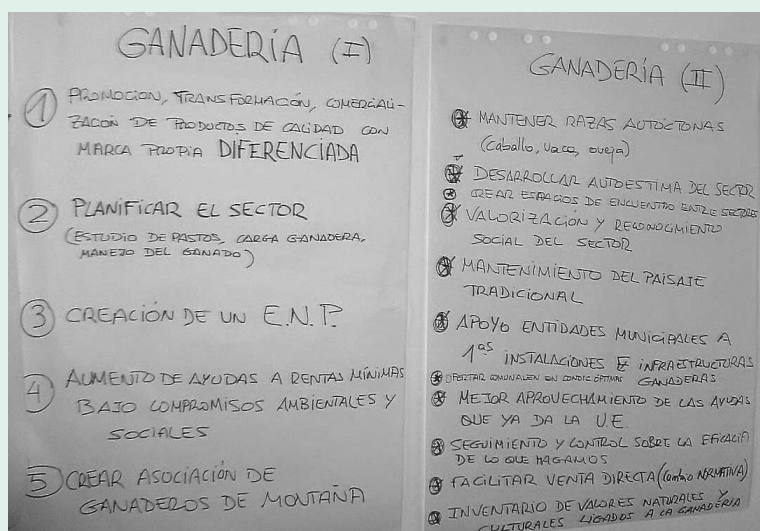 GANADERÍA (I)
① PROMOCION, TRANSFORMACIÓN, COMERCIALI-
ZACIÓN DE PRODUCTOS DE CALIDAD CON
MARCA PROPIA DIFERENCIADA
② PLANIFICAR EL SECTOR
(ESTUDIO DE PASTOS, CARGA GANADERA,
MANEJO DEL GANADO)
③ CREACIÓN DE UN E.N.P.
④ AUMENTO DE AYUDAS A RENTAS MÍNIMAS
BAJO COMPROMISOS AMBIENTALES Y
SOCIALES
⑤ CREAR ASOCIACIÓN DE
GANADEROS DE MONTAÑA
GANADERÍA (II)
* MANTENER RAZAS AUTÓCTONAS
(Caballo, vaca, oveja)
* DESARROLLAR AUTOESTIMA DEL SECTOR
* CREAR ESPACIOS DE ENCUENTRO ENTRE SECTORES
* VALORIZACIÓN Y RECONOCIMIENTO
SOCIAL DEL SECTOR
* MANTENIMIENTO DEL PAISAJE
TRADICIONAL
* APOYO ENTIDADES MUNICIPALES A
1ªs INSTALACIONES E INFRAESTRUCTURAS
GANADERAS
* OFERTAR COMUNALES EN CONDIC. ÓPTIMAS
* MEJOR APROVECHAMIENTO DE LAS AYUDAS
QUE YA DA LA U.E.
* SEGUIMIENTO Y CONTROL SOBRE LA EFICACIA
DE LO QUE HAGAMOS
* FACILITAR VENTA DIRECTA (Cambio NORMATIVA)
* INVENTARIO DE VALORES NATURALES Y
CULTURALES LIGADOS A LA GANADERÍA